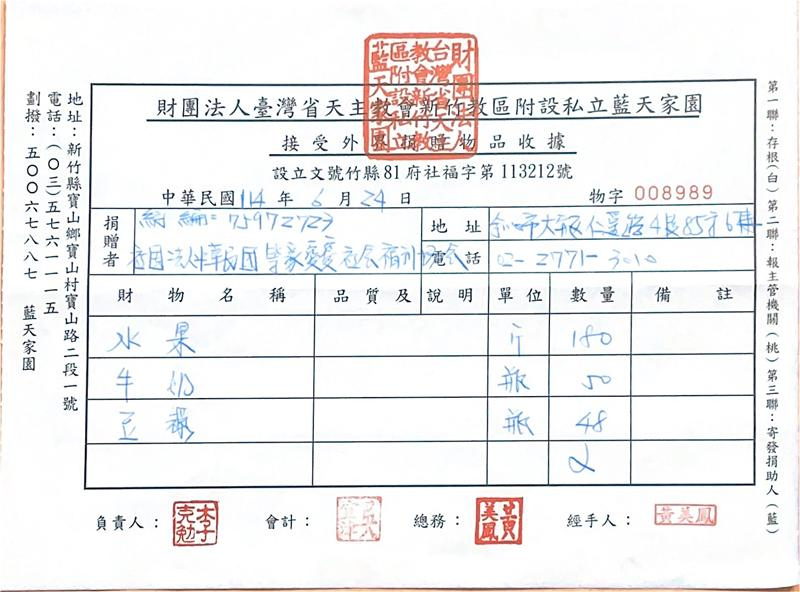 財團法人臺灣省天主教會新竹教區附設私立藍天家園
接受外界捐贈物品收據
設立文號竹縣81府社福字第113212號
中華民國114年6月24日
物字 008989
捐贈者
統編:75972723
財團法人中華民國
社會福利
地址
仁愛路4段85
電話
02-2771-3010
財物名稱 品質及說明 單位 數量 備註
水果 斤 180
牛奶 瓶 50
豆漿 瓶 48
負責人: 李克勉 會計: 總務: 黃美鳳 經手人: 黃美鳳
地址:新竹縣寶山鄉寶山村寶山路二段一號
電話:(〇三)五七六一一一五
劃撥:五〇〇六七八八七 藍天家園
第一聯:存根(白) 第二聯:報主管機關(桃) 第三聯:寄發捐助人(藍)
財團法人台灣省天主教會新竹教區附設私立藍天家園